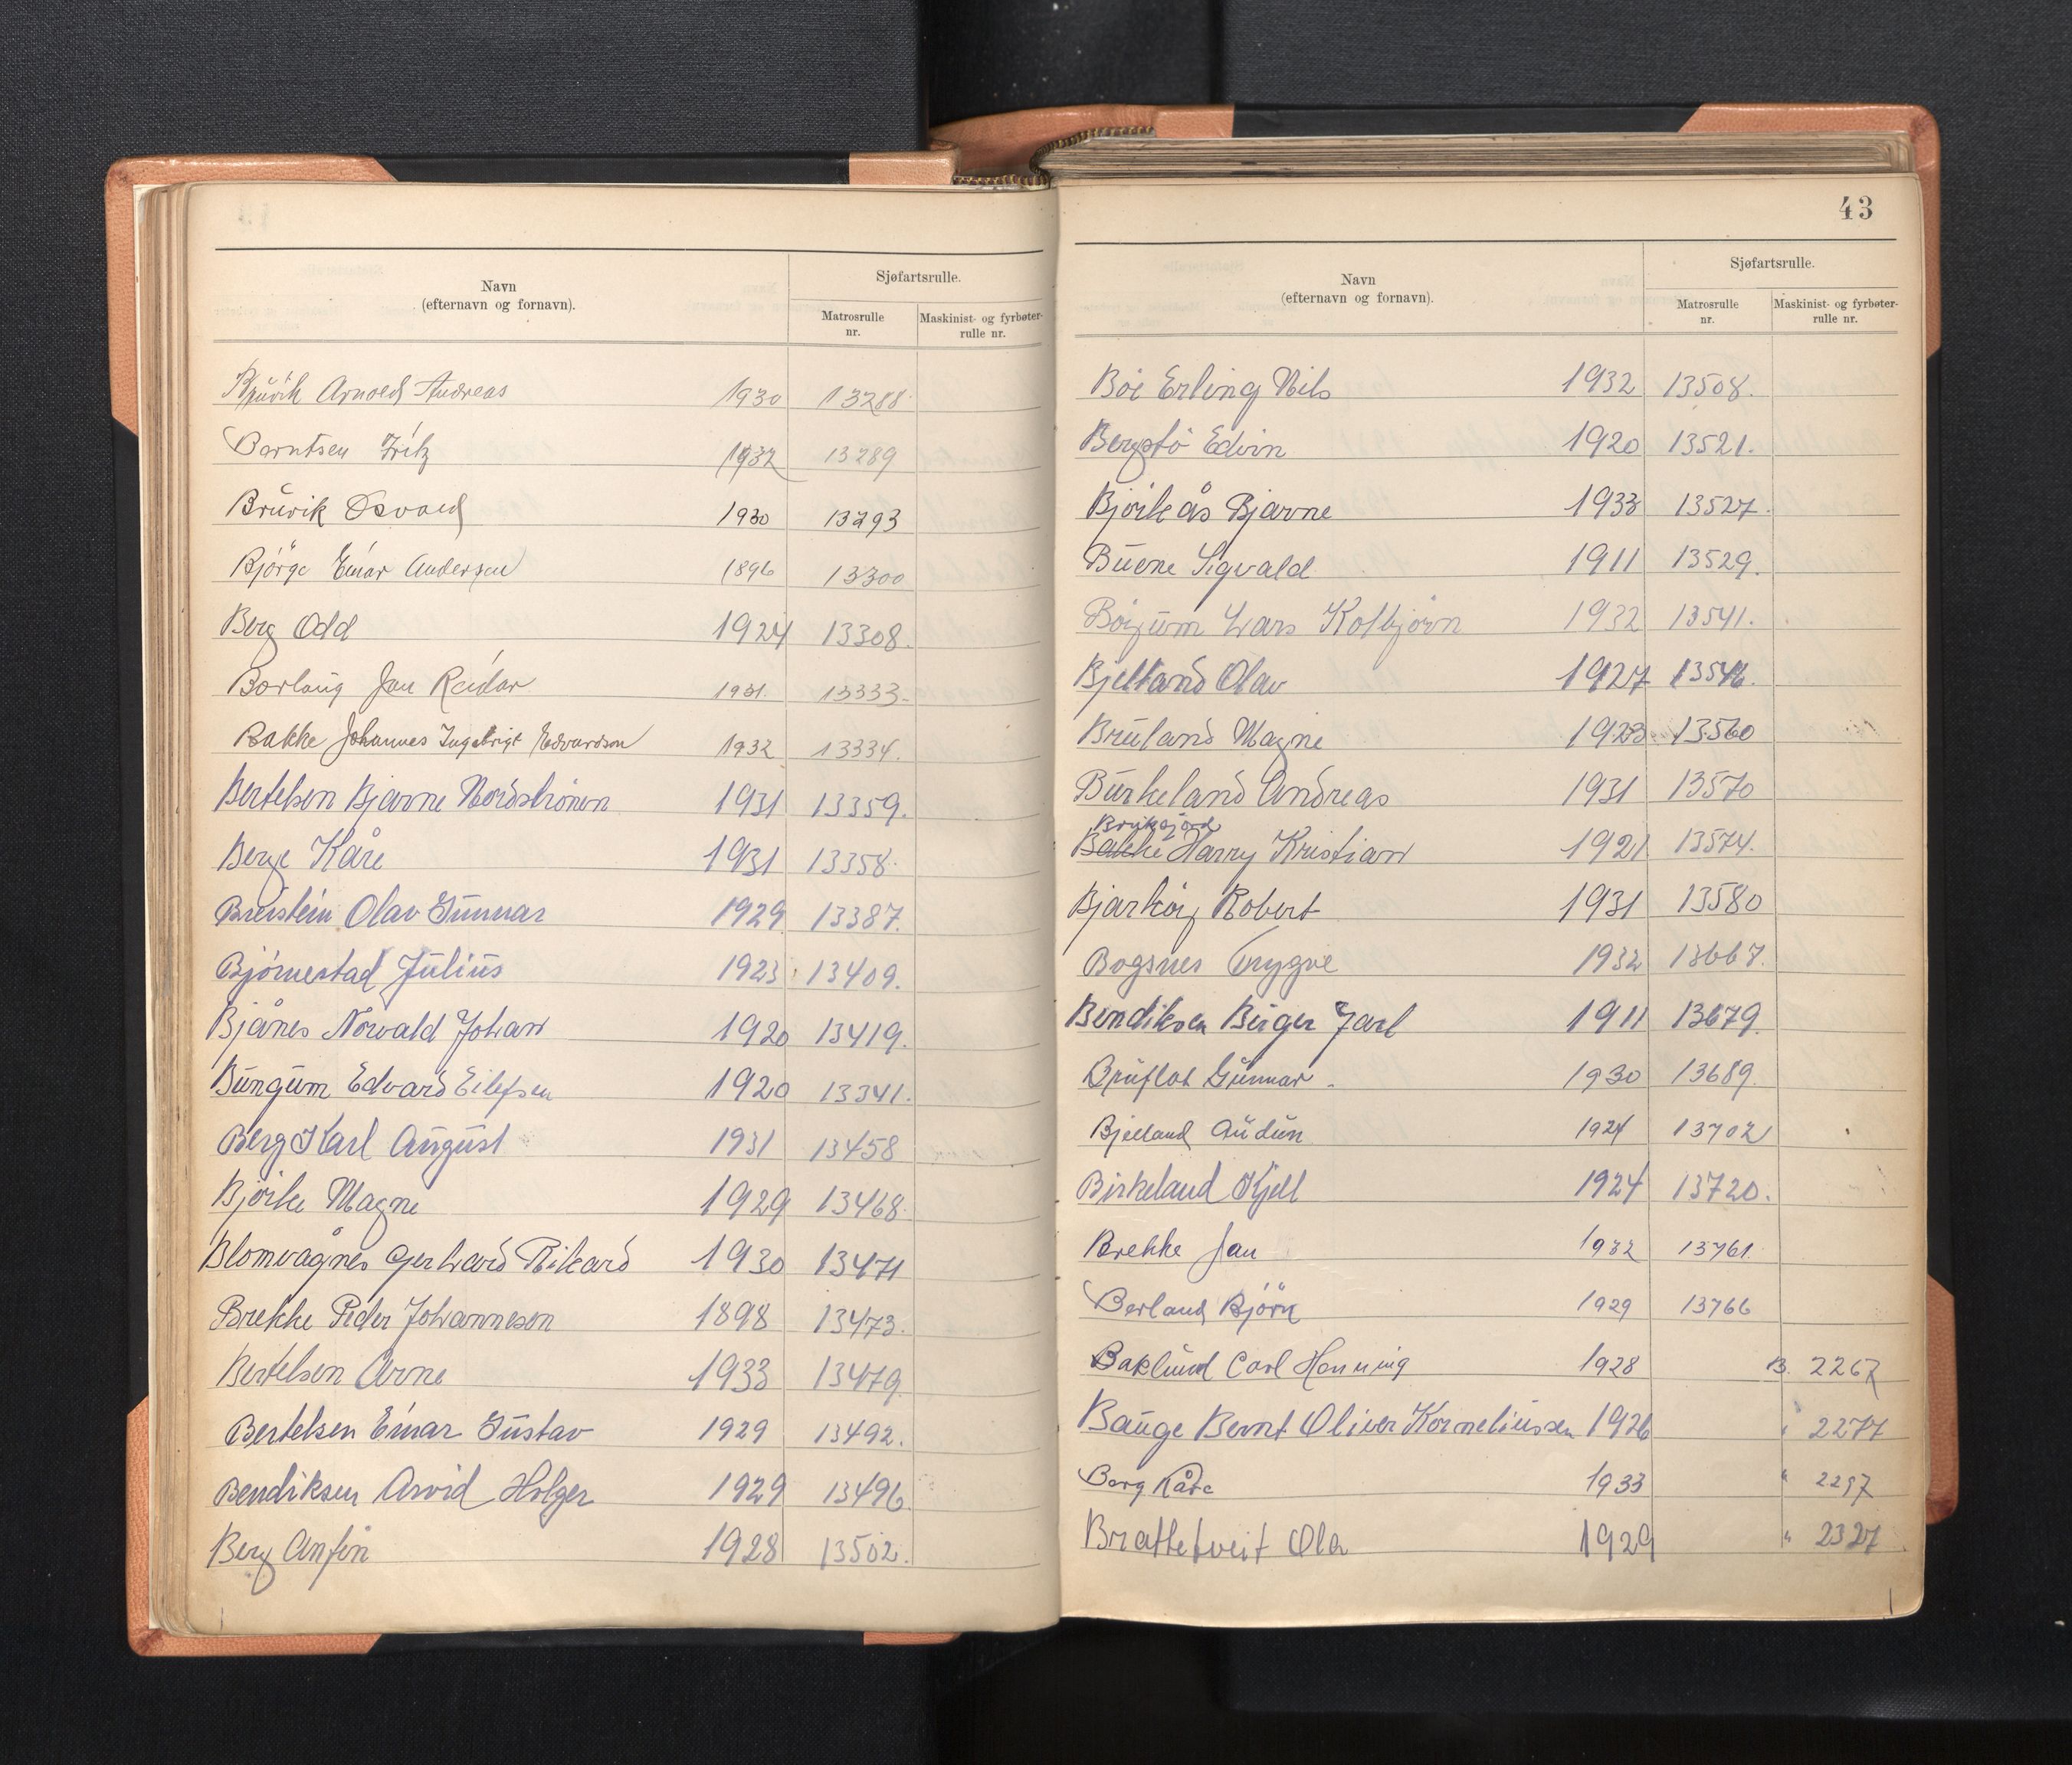 Navn
(efternavn og fornavn).
Sjøfartsrulle.
Matrosrulle
nr.
Maskinist- og fyrbøter-
rulle nr.
Bruvik Arnold Andreas 1930 13288
Berntsen Fritz 1932 13289
Bruvik Osvald 1930 13293
Björge Einar Andersen 1896 13300
Berg Odd 1924 13308.
Borlaug Jan Reidar 1931. 13333.
Bakke Johannes Ingebrigt Edvardson 1932 13334.
Bertelsen Bjarne Nordströnen 1931 13359.
Berge Kåre 1931 13358.
Breistein Olav Gunnar 1929 13387.
Björnestad Julius 1923 13409.
Bjånes Norvald Johan 1920 13419.
Bungum Edvard Eilefsen 1920 13341.
Berg Karl August 1931 13458
Björke Magne 1929 13468.
Blomvågnes Gerhard Rikard 1930 13471
Brekke Peder Johanneson 1898 13473.
Bertelsen Arne 1933 13479.
Bertelsen Einar Gustav 1929 13492.
Bendiksen Arvid Holger 1929 13496.
Berg Anfin 1928 13502.
43
Navn
(efternavn og fornavn).
Sjøfartsrulle.
Matrosrulle
nr.
Maskinist- og fyrbøter-
rulle nr.
Böe Erling Nils 1932 13508.
Bergstö Edvin 1920 13521.
Björkås Bjarne 1933 13527.
Buene Sigvald 1911 13529.
Böizum Lars Kolbjörn 1932 13541.
Bjelland Olav 1927
Bruland Magne 1923 13560
Burkeland Andreas 1931 13570
Briksjord
Bakke Harry Kristian 1921 13574.
Bjarköiz Robert 1931 13580
Bogsnes Trygve 1932 13667.
Bendiksen Birger Jarl 1911 13679.
Bruflot Gunnar. 1930 13689.
Bjelland Audun 1924 13702
Birkeland Kjell 1924 13720.
Brekke Jan 1932 13761
Berland Björn 1929 13766
Baklund Carl Henning 1928 B. 2267
Bauge Bernt Oliver Korneliussen 1926 " 2277
Berg Kåre 1933 " 2297
Brattetveit Ola 1929 " 2327